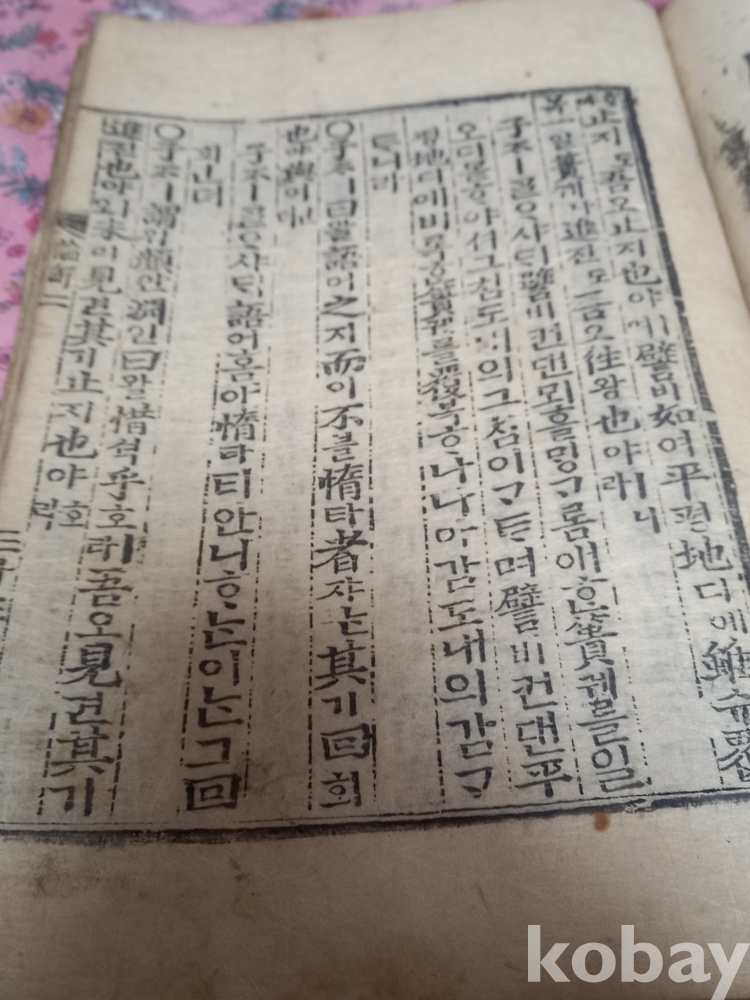 止지도吾오止지也야ㅣ며譬비如여平평地디에雖슈覆
一일簣궤나進진도吾오往왕也야ㅣ라니
子ᄌᆞㅣᄀᆞᆯᄋᆞ샤ᄃᆡ譬비컨댄뫼흘ᄆᆡᆼᄀᆞ롬애ᄒᆞᆫ簣궤를일
오디몯ᄒᆞ야셔그침도내의그침이ᄀᆞᄐᆞ며譬비컨댄平
평地디에비록ᄒᆞᆫ簣궤를覆복ᄒᆞ나나아감도내의감ᄀᆞ
ᄐᆞ니라
○子ᄌᆞㅣ曰왈語어之지而이不블惰타者쟈ᄂᆞᆫ其기回회
也야與여ㅣ뎌
子ᄌᆞㅣᄀᆞᆯᄋᆞ샤ᄃᆡ語어홈아惰타티안니ᄒᆞᄂᆞᆫ이ᄂᆞᆫ그回
회ㅣ뎌
○子ᄌᆞㅣ謂위顔안淵인曰왈惜셕乎호ㅣ라吾오見견其기
進진也야ㅣ오未미見견其기止지也야호라
論語二
kobay